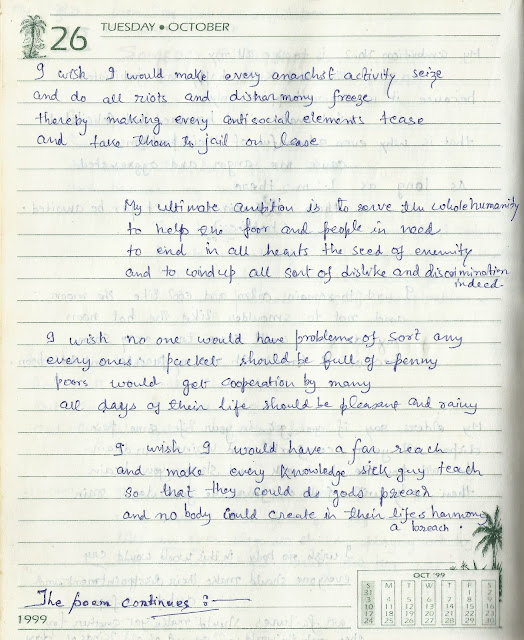 26
TUESDAY • OCTOBER
I wish I would make every anarchst activity seize
and do all riots and disharmony freeze
thereby making every antisocial elements tease
and take them to jail on lease
My ultimate ambition is to serve the whole humanity
to help the poor and people in need
to end in all hearts the seed of enemity
and to windup all sort of dislike and discrimination
indeed.
I wish no one would have problems of sort any
every ones packet should be full of penny
poors would get cooperation by many
all days of their life should be pleasant and rainy
I wish I would have a far reach
and make every knowledge sick guy teach
so that they could do gods preach
and no body could create in their life's harmony
a breach.
The poem continues :—
1999
OCT '99
S M T W T F S
31 1 2
3 4 5 6 7 8 9
10 11 12 13 14 15 16
17 18 19 20 21 22 23
24 25 26 27 28 29 30